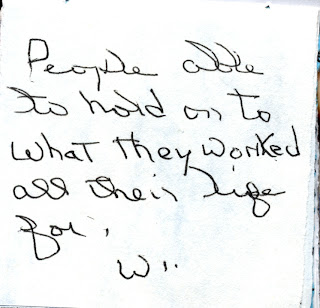 People able
to hold on to
what they worked
all their life
for.
W..